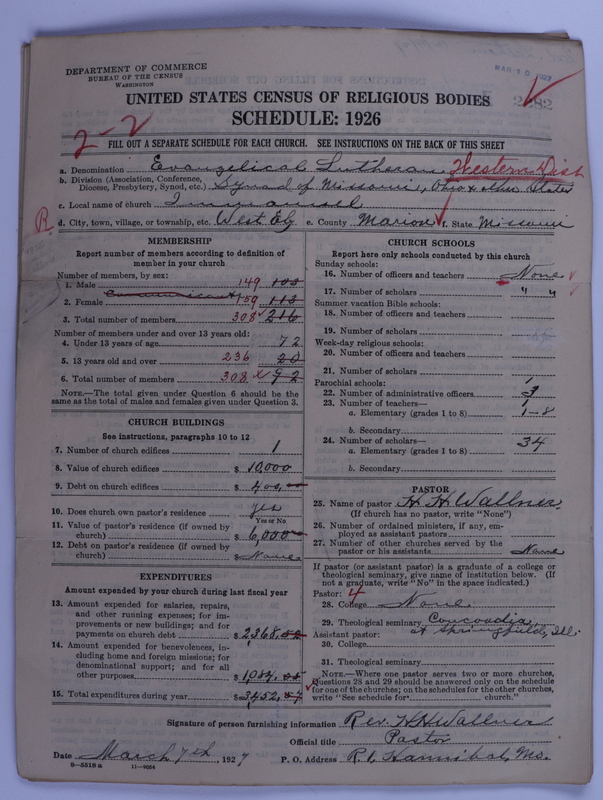 DEPARTMENT OF COMMERCE
BUREAU OF THE CENSUS
WASHINGTON
UNITED STATES CENSUS OF RELIGIOUS BODIES
SCHEDULE: 1926
2-2
FILL OUT A SEPARATE SCHEDULE FOR EACH CHURCH. SEE INSTRUCTIONS ON THE BACK OF THIS SHEET
a. Denomination Evangelical Lutheran Western Dist
b. Division (Association, Conference,
Diocese, Presbytery, Synod, etc.) Synod of Missouri, Ohio & other States
c. Local name of church Immanuel
d. City, town, village, or township, etc. West Ely e. County Marion f. State Missouri
R
MEMBERSHIP
Report number of members according to definition of
member in your church
Number of members, by sex:
1. Male 149 103
Communicant
2. Female 159 113
3. Total number of members 308 216
Number of members under and over 13 years old:
4. Under 13 years of age 72
5. 13 years old and over 236 20
6. Total number of members 308 x 92
NOTE.—The total given under Question 6 should be the
same as the total of males and females given under Question 3.
CHURCH BUILDINGS
See instructions, paragraphs 10 to 12
7. Number of church edifices 1
8. Value of church edifices $ 10,000
9. Debt on church edifices $ 400,—
10. Does church own pastor's residence? yes
Yes or No
11. Value of pastor's residence (if owned by
church) $ 6,000—
12. Debt on pastor's residence (if owned by
church) $ None
EXPENDITURES
Amount expended by your church during last fiscal year
13. Amount expended for salaries, repairs,
and other running expenses; for im-
provements or new buildings; and for
payments on church debt $ 2,368.
14. Amount expended for benevolences, in-
cluding home and foreign missions; for
denominational support; and for all
other purposes 1,084.
15. Total expenditures during year $ 3,452.
CHURCH SCHOOLS
Report here only schools conducted by this church
Sunday schools:
16. Number of officers and teachers None
17. Number of scholars " "
Summer vacation Bible schools:
18. Number of officers and teachers
19. Number of scholars
Week-day religious schools:
20. Number of officers and teachers
21. Number of scholars
Parochial schools:
22. Number of administrative officers 3
23. Number of teachers— 1
a. Elementary (grades 1 to 8) 1-8
b. Secondary
24. Number of scholars— 34
a. Elementary (grades 1 to 8)
b. Secondary
PASTOR
25. Name of pastor H. H. Wallner
(If church has no pastor, write "None")
26. Number of ordained ministers, if any, em-
ployed as assistant pastors
27. Number of other churches served by the
pastor or his assistants None
If pastor (or assistant pastor) is a graduate of a college or
theological seminary, give name of institution below. (If
not a graduate, write "No" in the space indicated.)
Pastor: 4
28. College None
29. Theological seminary Concordia
Assistant pastor: at Springfield, Ill.
30. College
31. Theological seminary
NOTE.—Where one pastor serves two or more churches,
Questions 28 and 29 should be answered only on the schedule
for one of the churches; on the schedules for the other churches,
write "See schedule for church."
Signature of person furnishing information Rev. H. H. Wallner
Official title Pastor
Date March 7th, 1927 P. O. Address R. 1, Hannibal, Mo.
8—5518 a 11—9054